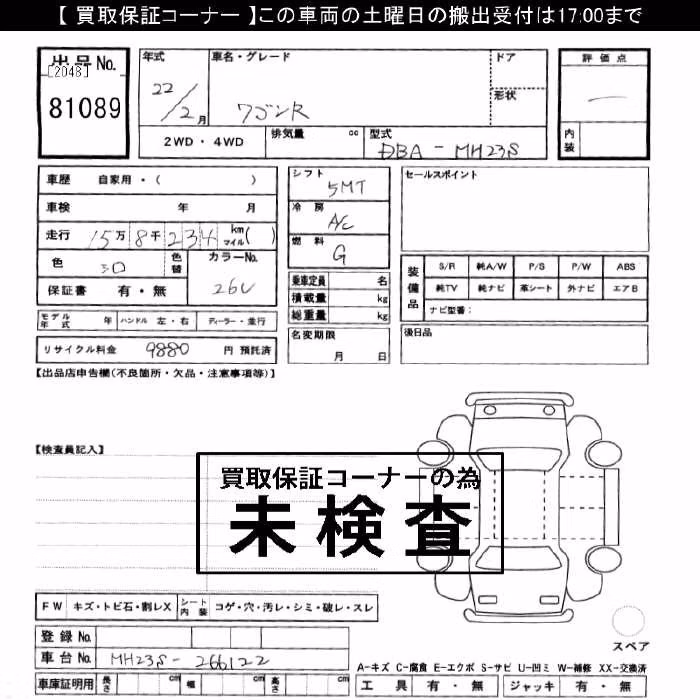 【 買取保証コーナー 】この車両の土曜日の搬出受付は17:00まで
出品No.
[2048]
81089
年式 22/2月
車名・グレード
ワゴンR
ドア
形状
評価点
内装
2WD・4WD
排気量 cc
型式
DBA-MH23S
車歴 自家用・( )
車検 年 月
走行 15万8千234 km マイル( )
色
色替
カラーNo.
26U
保証書 有・無
シフト
5MT
冷房
A/C
燃料
G
乗車定員 名
積載量 kg
総重量 kg
セールスポイント
装備品
S/R 純A/W P/S P/W ABS
純TV 純ナビ 革シート 外ナビ エアB
ナビ型番:
モデル年式 年 ハンドル 左・右 ディーラー・並行
リサイクル料金 9880 円 預託済
名変期限
月 日
後日品
【出品店申告欄(不良箇所・欠品・注意事項等)】
【検査員記入】
買取保証コーナーの為
未検査
FW キズ・トビ石・割レX シート内装 コゲ・穴・汚レ・シミ・破レ・スレ
スペア
登録No.
車台No. MH23S-266122
A-キズ C-腐食 E-エクボ S-サビ U-凹ミ W-補修 XX-交換済
車庫証明用 長さ cm 幅 cm 高さ cm
工具 有・無 ジャッキ 有・無